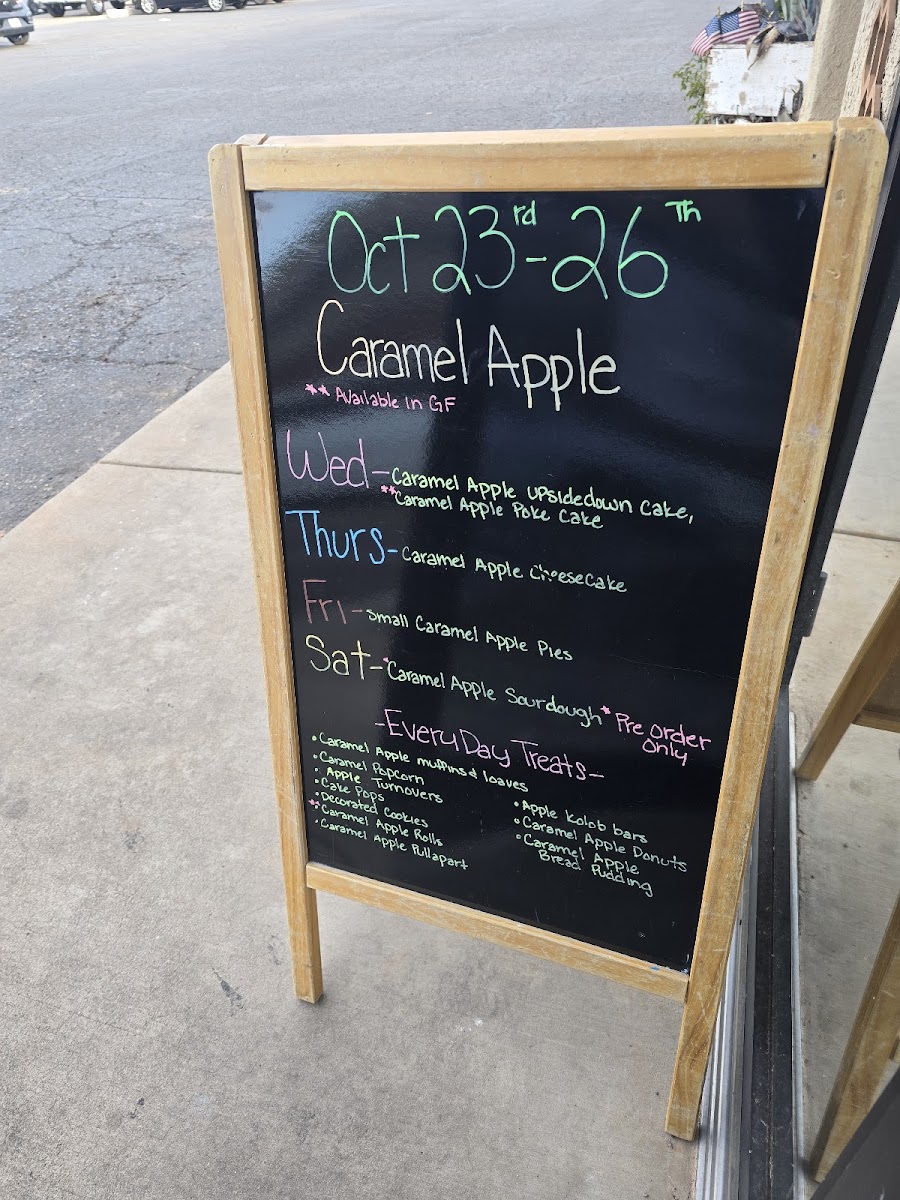 Oct 23rd - 26Th
Caramel Apple
** Available in GF
Wed - Caramel Apple upsidedown Cake,
**Caramel Apple Poke Cake
Thurs - Caramel Apple Cheesecake
Fri - Small Caramel Apple Pies
Sat - *Caramel Apple Sourdough * Pre order
only
- EveryDay Treats -
• Caramel Apple muffins & loaves
• Caramel Popcorn
• Apple Turnovers
• Cake Pops
• Decorated Cookies
**• Caramel Apple Rolls
• Caramel Apple Pullapart
• Apple Kolob bars
• Caramel Apple Donuts
• Caramel Apple
Bread Pudding